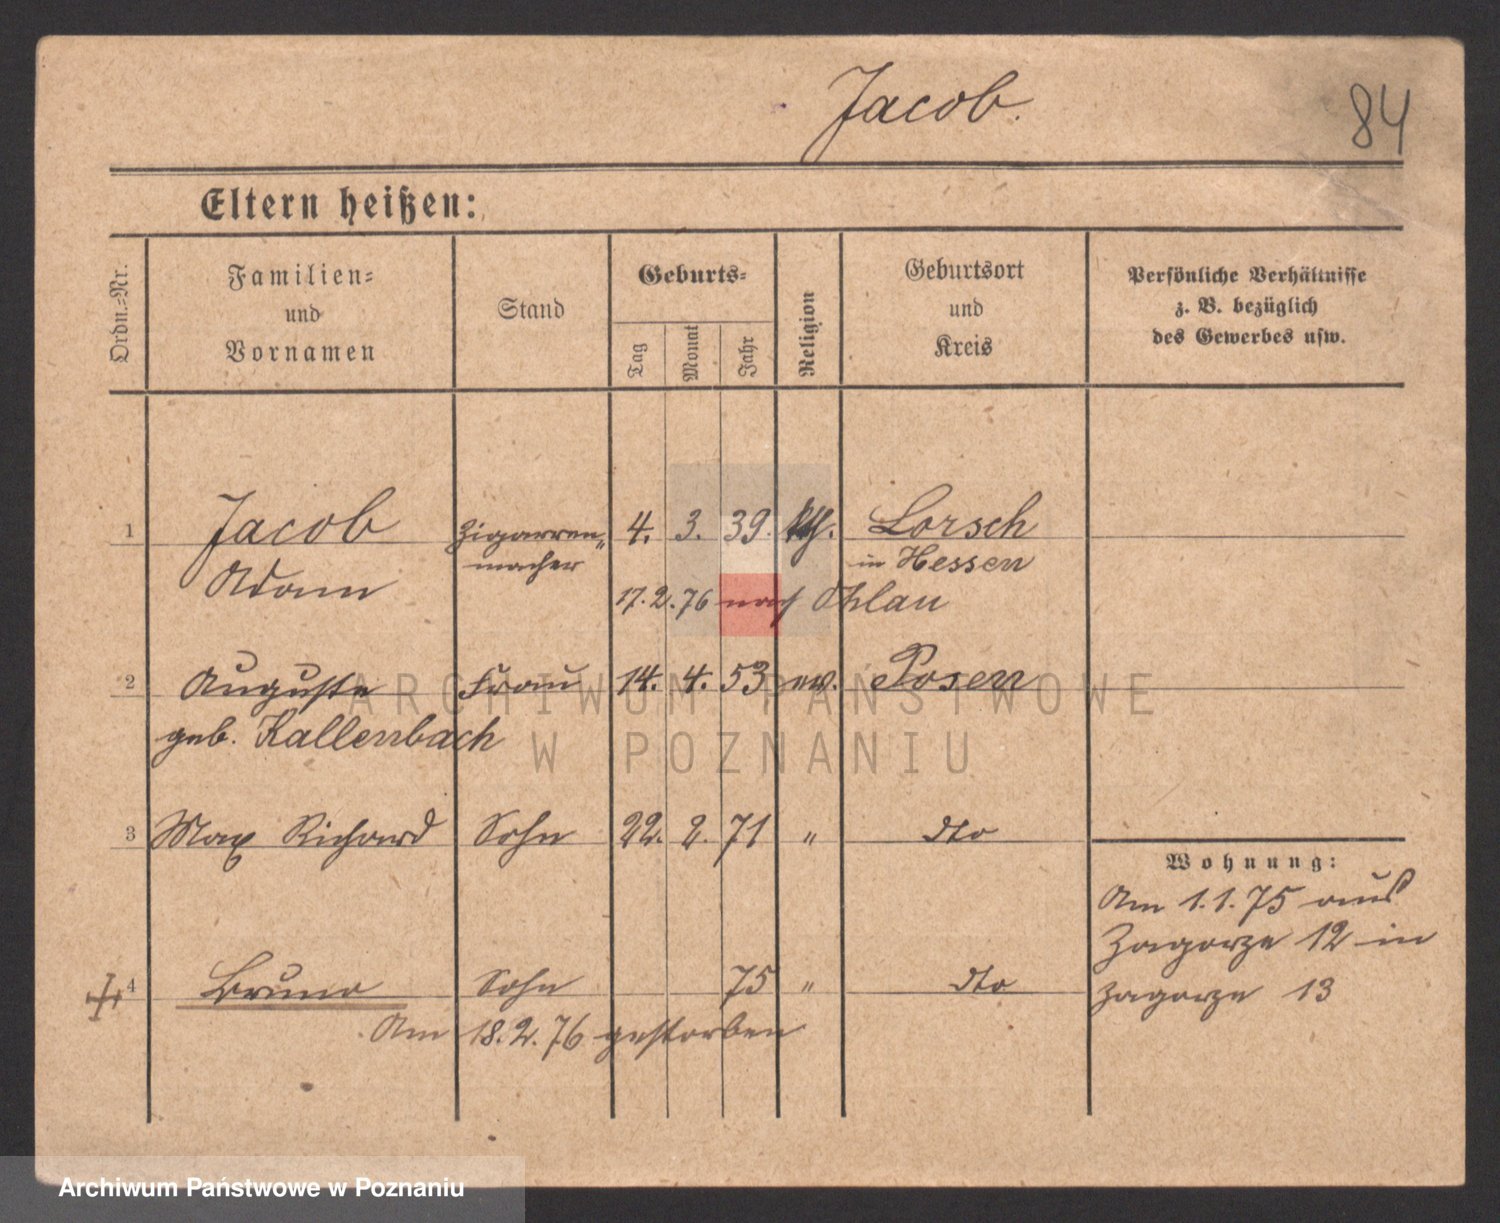 Jacob.
84
Eltern heißen:
Ordn.-Nr.
Familien-
und
Vornamen
Stand
Geburts-
Tag
Monat
Jahr
Religion
Geburtsort
und
Kreis
Persönliche Verhältnisse
z. B. bezüglich
des Gewerbes usw.
1 Jacob Zigarren- 4. 3. 39. kth. Lorsch
macher in Hessen
Adam 17.2.76 nach Ohlau
2 Auguste Frau 14. 4. 53 ev. Posen
geb. Kallenbach
3 Max Richard Sohn 22. 2. 71 " dto
Wohnung:
Am 1.1.75 aus
Zagorze 12 in
Zagorze 13
4 Bruno Sohn 75 " dto
Am 18.2.76 gestorben
ARCHIWUM PAŃSTWOWE
W POZNANIU
Archiwum Państwowe w Poznaniu